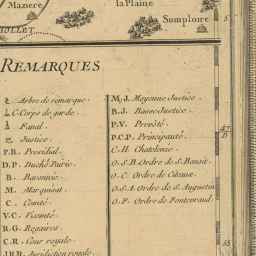 Maziere
la Plaine
HOLLET
Somploire
REMARQUES
Arbre de remarque
Corps de garde
Fanal
Justice
P.R. Presidial
D.P. Duché Pairie
B. Baronnie
M. Marquisat
C. Comté
V.C. Vicomté
R.G. Regaires
C.R. Cour royale
JR.R. Jurisdiction royale
M.J. Moyenne Justice
B.J. Basse Justice
P.V. Prevôté
P.C.P. Principauté
C.H. Chatelenie
O.S.B. Ordre de S. Benoit
O.C. Ordre de Citeaux
O.S.A. Ordre de S. Augustin
O.F. Ordre de Fontevraud
5
47
55